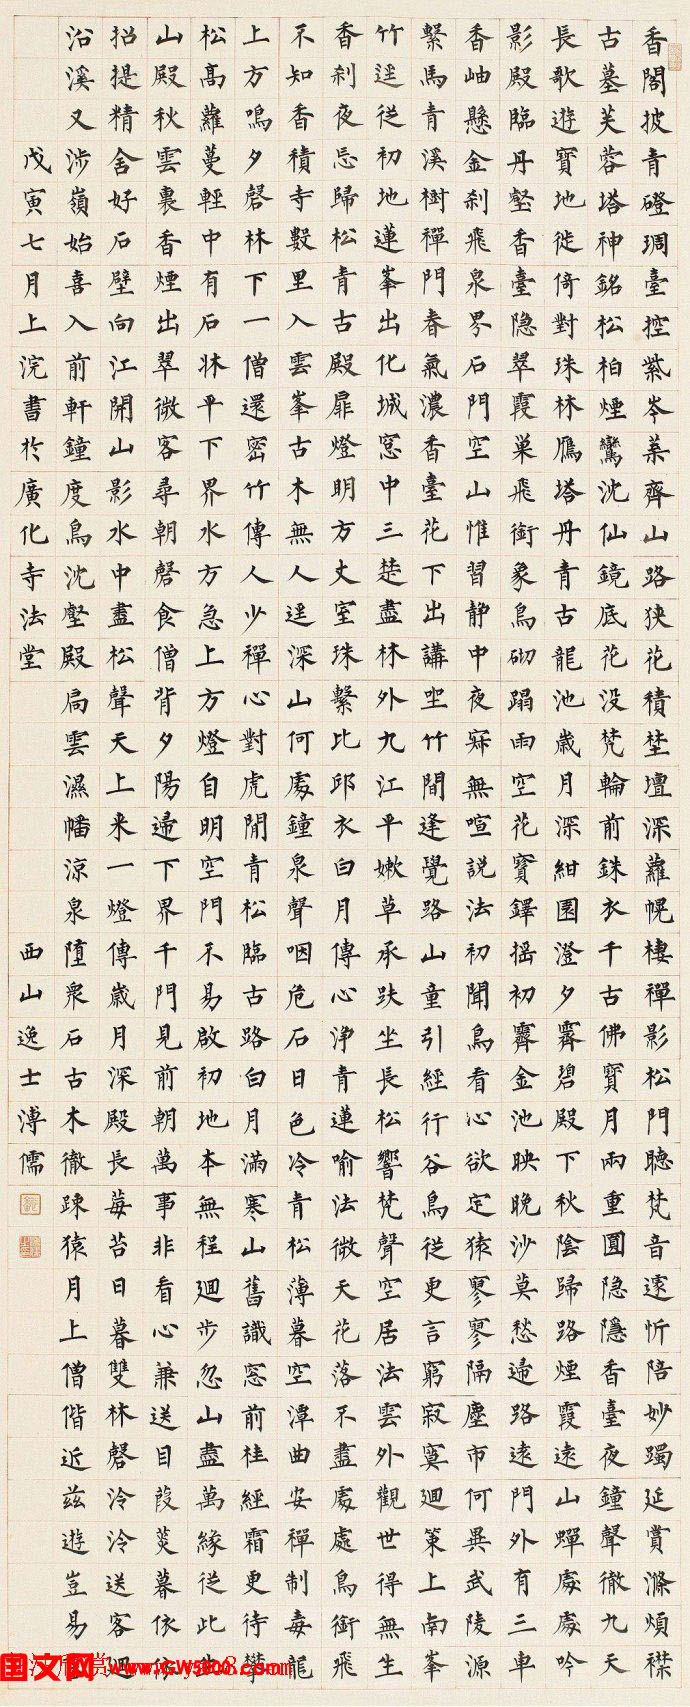 香閣披青磴琱臺控紫岑葉齊山路狹花積埜壇深蘿幌棲禪影松門聽梵音遽忻陪妙躅延賞滌煩襟
古墓芙蓉塔神銘松柏煙鸞沈仙鏡底花没梵輪前銖衣千古佛寶月兩重圓隐隱香臺夜鐘聲徹九天
長歌遊寶地徙倚對珠林鴈塔丹青古龍池歲月深紺園澄夕霽碧殿下秋陰歸路煙霞遠山蟬處處吟
影殿臨丹壑香臺隐翠霞巢飛銜象鳥砌蹋雨空花寶鐸摇初霽金池映晚沙莫愁歸路遠門外有三車
香岫懸金刹飛泉界石門空山惟習靜中夜寂無喧説法初聞鳥看心欲定猿寥寥隔塵市何異武陵源
繫馬青溪樹禪門春氣濃香臺花下出講坐竹間逢覺路山童引經行谷鳥從更言窮寂寞迴策上南峯
竹逕從初地蓮峯出化城窓中三楚盡林外九江平嫩草承趺坐長松響梵聲空居法雲外觀世得無生
香刹夜忘歸松青古殿扉燈明方丈室珠繫比邱衣白月傳心浄青蓮喻法微天花落不盡處處鳥銜飛
不知香積寺數里入雲峯古木無人逕深山何處鐘泉聲咽危石日色冷青松薄暮空潭曲安禪制毒龍
上方鳴夕磬林下一僧還密竹傳人少禪心對虎閒青松臨古路白月滿寒山舊識窓前桂經霜更待攀
松高蘿蔓輕中有石牀平下界水方急上方燈自明空門不易啟初地本無程迴步忽山盡萬緣從此
山殿秋雲裏香煙出翠微客尋朝磬食僧背夕陽歸下界千門見前朝萬事非看心兼送目葭菼暮依依
招提精舍好石壁向江開山影水中盡松聲天上来一燈傳歲月深殿長莓苔日暮雙林磬泠泠送客迴
沿溪又涉嶺始喜入前軒鐘度鳥沈壑殿扃雲濕幡涼泉墮衆石古木徹疎猿月上僧偕近兹遊豈易
戊寅七月上浣書於廣化寺法堂 西山逸士溥儒
国文网 www.GW5000.com